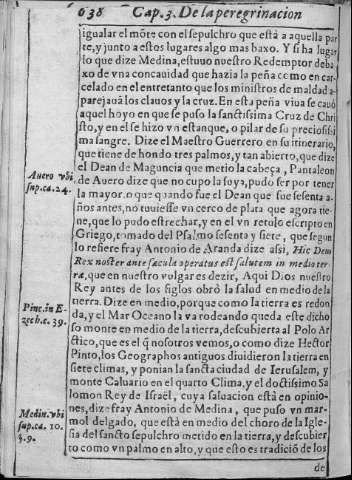 638 Cap. 3. De la peregrinacion
igualar el mõte con el sepulchro que està a aquella par
te, y junto a estos lugares algo mas baxo. Y si ha lugar
lo que dize Medina, estuuo nuestro Redemptor deba
xo de vna concauidad que hazia la peña como en car
celado en el entretanto que los ministros de maldad a
parejauã los clauos y la cruz. En esta peña viua se cauò
aquel hoyo en que se puso la sanctissima Cruz de Chri
sto, y en el se hizo vn estanque, o pilar de su preciosissi
ma sangre. Dize el Maestro Guerrero en su itinerario,
que tiene de hondo tres palmos, y tan abierto, que dize
el Dean de Maguncia que metio la cabeça, Pantaleon
Auero vbi
sup. ca. 24.
de Auero dize que no cupo la suya, pudo ser por tener
la mayor, o que quando fue el Dean que fue sesenta a-
ños antes, no tuuiesse vn cerco de plata que agora tie
ne, que lo pudo estrechar, y en el vn retulo escripto en
Griego, tomado del Psalmo sesenta y siete, que segun
lo refiere fray Antonio de Aranda dize assi, Hic Dem
Rex noster ante sæcula operatus est salutem in medio ter
ræ, que en nuestro vulgar es dezir, Aqui Dios nuestro
Rey antes de los siglos obrò la salud en medio de la
tierra. Dize en medio, porque como la tierra es redon
Pinc. in E-
zech. c. 39.
da, y el Mar Oceano la va rodeando queda este dicho
so monte en medio de la tierra, descubierta al Polo Ar
ctico, que es el q̃ nosotros vemos, o como dize Hector
Pinto, los Geographos antiguos diuidieron la tierra en
siete climas, y ponian la sancta ciudad de Ierusalem, y
monte Caluario en el quarto Clima, y el doctissimo Sa
lomon Rey de Israèl, cuya saluacion està en opinio-
Medin. vbi
sup. ca. 10.
§. 9.
nes, dize fray Antonio de Medina, que puso vn mar-
mol delgado, que està en medio del choro de la Igle-
sia del sancto sepulchro metido en la tierra, y descubier
to como vn palmo en alto, y que esto es tradiciò de los
de